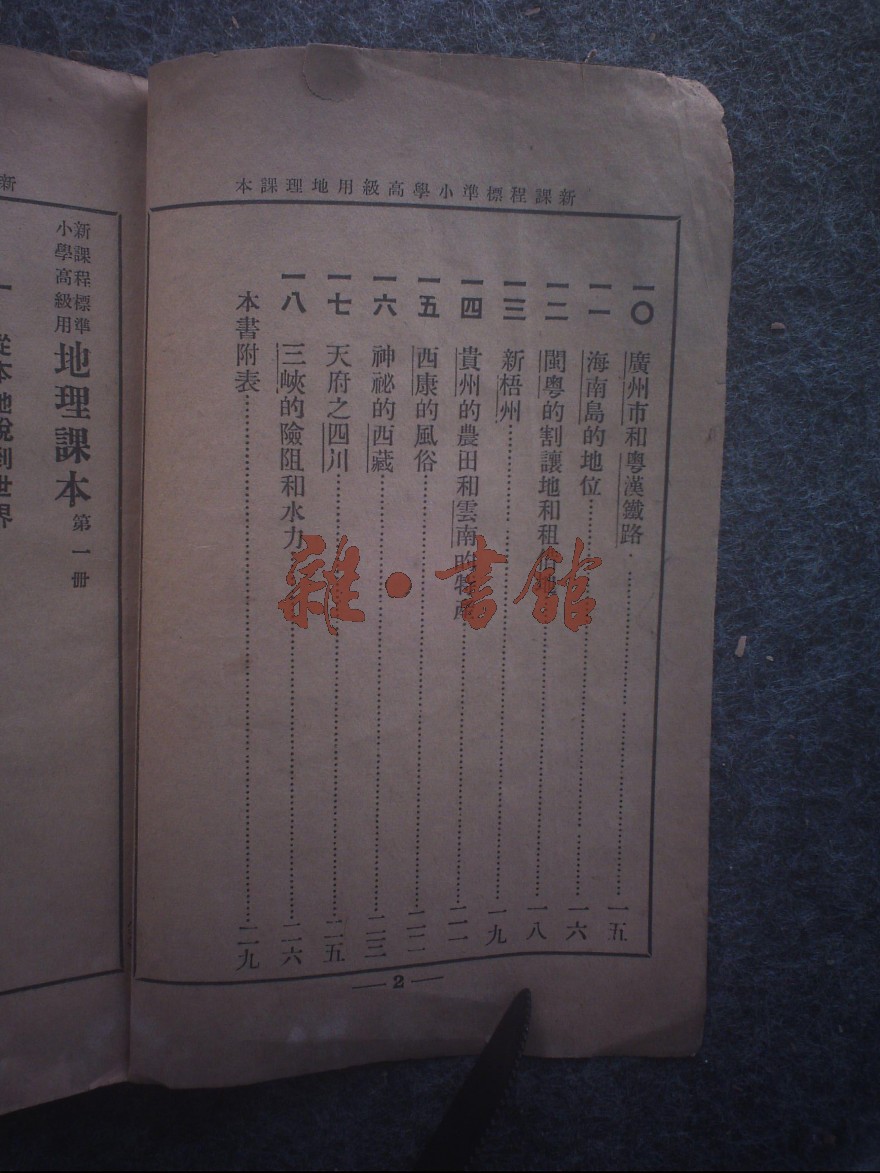 新課程標準小學高級用地理課本
一〇 廣州市和粵漢鐵路 一五
一一 海南島的地位 一六
一二 閩粵的割讓地和租借地 一八
一三 新梧州 一九
一四 貴州的農田和雲南的物產 二一
一五 西康的風俗 二二
一六 神祕的西藏 二三
一七 天府之四川 二五
一八 三峽的險阻和水力 二六
本書附表 二九
2
雜·書館
新
新課程標準
小學高級用
地理課本 第一冊
一 從本地說到世界